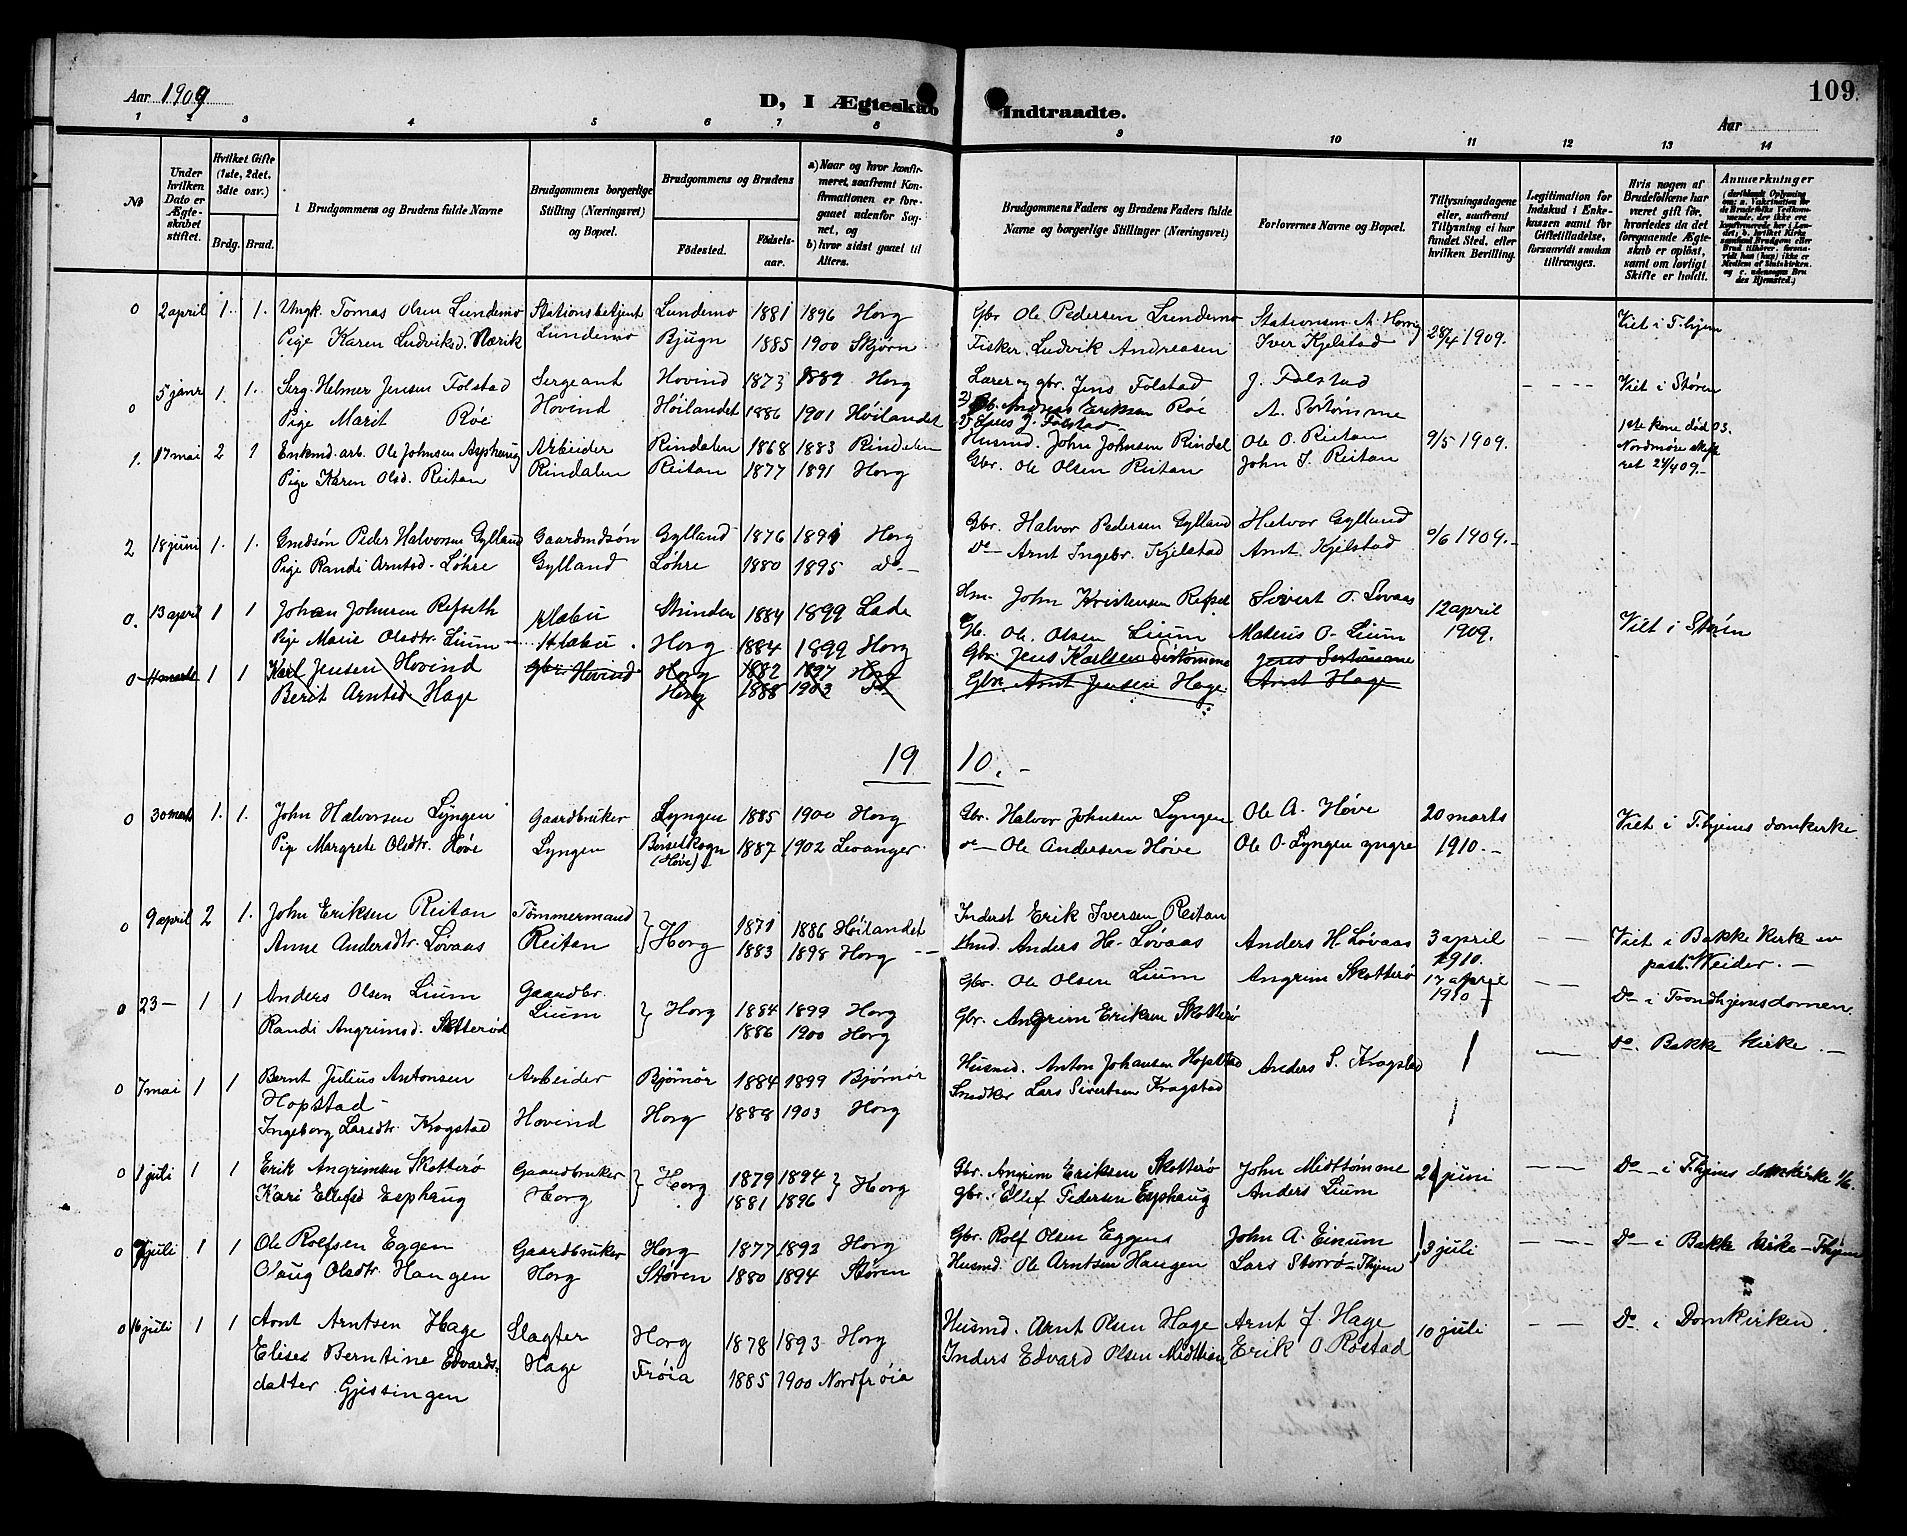 Aar 1909
D, I Ægteskab Indtraadte.
109.
Aar
1 2 3 4 5 6 7 8 9 10 11 12 13 14
No
Under hvilken Dato er Ægteskabet stiftet.
Hvilket Gifte (1ste, 2det, 3die osv.)
Brdg. Brud.
Brudgommens og Brudens fulde Navne
Brudgommens borgerlige Stilling (Næringsvei) og Bopæl.
Brudgommens og Brudens
Fødested.
Fødselsaar.
a) Naar og hvor konfirmeret, saafremt Konfirmationen er foregaaet udenfor Sognet, og
b) hvor sidst gaaet til Alters.
Brudgommens Faders og Brudens Faders fulde Navne og borgerlige Stillinger (Næringsvei)
Forlovernes Navne og Bopæl.
Tillysningsdagene eller, saafremt Tillysning ei har fundet Sted, efter hvilken Bevilling.
Legitimation for Indskud i Enkekassen samt for Giftetilladelse, forsaavidt saadan tiltrænges.
Hvis nogen af Brudefolkene har været gift før, hvorledes da det foregaaende Ægteskab er opløst, samt om lovligt Skifte er holdt.
Anmærkninger
0 2 april 1. 1. Ungk. Tomas Olsen Lundemo Stationsbetjent Lundemo 1881 1896 Horg Gbr Ole Pedersen Lundemo Stationsm. A. Horrig 28/4 1909. Viet i T.hjem
Pige Karen Ludviksd. Nærik Lundemo Bjugn 1885 1900 Skjørn Fisker Ludvik Andreasen Iver Kjelstad
0 5 janr 1. 1. Serg. Helmer Jensen Folstad Sergeant Hovind 1873 1889 Horg Lærer og gbr. Jens Folstad J. Folstad Viet i Støren
Pige Marit Røe Hovind Høilandet 1886 1901 Høilandet 2) Gb. Andreas Eriksen Røe A. Sørtømme
1) Jens J. Folstad
1. 17 mai 2 1 Enkemd. arb. Ole Johnsen Asphaug Arbeider Rindalen 1868 1883 Rindalen Husmd. John Johnsen Rindal Ole O. Reitan 9/5 1909. 1ste kone død 03. Nordmøre skifteret 24/4 09.
Pige Karen Olsd. Reitan Rindalen Reitan 1877 1891 Horg Gbr. Ole Olsen Reitan John I. Reitan
2 18 juni 1. 1. Gmdsøn Peder Halvorsen Gylland Gaardmdsøn Gylland 1876 1891 Horg Gbr. Halvor Pedersen Gylland Halvor Gylland 6/6 1909.
Pige Randi Arntsd. Løhre Gylland Løhre 1880 1895 do Do Arnt Ingebr. Kjelstad Arnt Kjelstad
0. 13 april 1 1 Johan Johnsen Refseth Klæbu Strinden 1884 1899 Lade Hm. John Kristensen Refset Sivert O. Lovaas 12 april 1909. Viet i Støren
Pige Marie Olsdtr. Lium Klæbu Horg 1884 1899 Horg Gb. Ole Olsen Lium Mateus O. Lium
0 11 marts 1 1 Karl Jensen Hovind Gbr. Hovind Horg 1882 1897 Horg Gbr. Jens Karlsen Sørtømme Jens Sørtømme
Berit Arntsd. Hage Horg 1888 1903 Do Gbr. Arnt Jensen Hage Arnt Hage
1910.
0 30 marts 1. 1. John Halvorsen Lyngen Gaardbruker Lyngen 1885 1900 Horg Gbr. Halvor Johnsen Lyngen Ole A. Høve 20 marts 1910. Viet i T.hjems domkirke
Pige Margrete Olsdtr. Høve Lyngen Børselskogn (Høve) 1887 1902 Levanger do Ole Andersen Høve Ole O. Lyngen yngre
0 9 april 2 1. John Eriksen Reitan Tømmermand Horg 1871 1886 Høilandet Inderst Erik Iversen Reitan Viet i Bakke kirke av past. Weider.
Anne Andersdtr. Løvaas Reitan 1883 1898 Horg Hmd. Anders H. Løvaas Anders H. Løvaas 3 april 1910.
0 23 1 1 Anders Olsen Lium Gaardbr. Lium Horg 1884 1899 Horg Gbr. Ole Olsen Lium Angrim Skotterø 17 april 1910 Do i Trondhjems domen
Randi Angrimsd. Skotterød 1886 1900 Horg Gbr. Angrim Eriksen Skotterø
0 7 mai 1 1 Bernt Julius Antonsen Hopstad Arbeider Bjørnør 1884 1899 Bjørnør Husmd. Anton Johansen Hopstad Anders S. Kragstad Do. Bakke kirke
Ingeborg Larsdtr. Kragstad Hovind Horg 1888 1903 Horg Snedker Lars Sivertsen Kragstad
0 1 juli 1 1 Erik Angrimsen Skotterø Gaardbruker Horg 1879 1894 Horg Gbr. Angrim Eriksen Skotterø John Midttømme 21 juni Do i T.hjems domkirke 1/6.
Kari Ellefsd Esphaug Horg 1881 1896 gbr. Ellef Pedersen Esphaug Anders Lium
0 9 juli 1 1 Ole Rolfsen Eggen Gaardbruker Horg 1877 1892 Horg Gbr. Rolf Olsen Eggens John A. Einum 3 juli Do i Bakke kirke T.hjem
Olaug Olsdtr. Haugen Horg Støren 1880 1894 Støren Husmd. Ole Arntsen Haugen Lars Storrø T.hjem
0 16 juli 1 1 Arnt Arntsen Hage Slagter Horg 1878 1893 Horg Husmd. Arnt Olsen Hage Arnt J. Hage 10 juli Do i Domkirken.
Elises Berntine Edvardsdatter Gjessingen Hage Frøia 1885 1900 Nordfrøia Inders Edvard Olsen Midttian Erik O Røstad